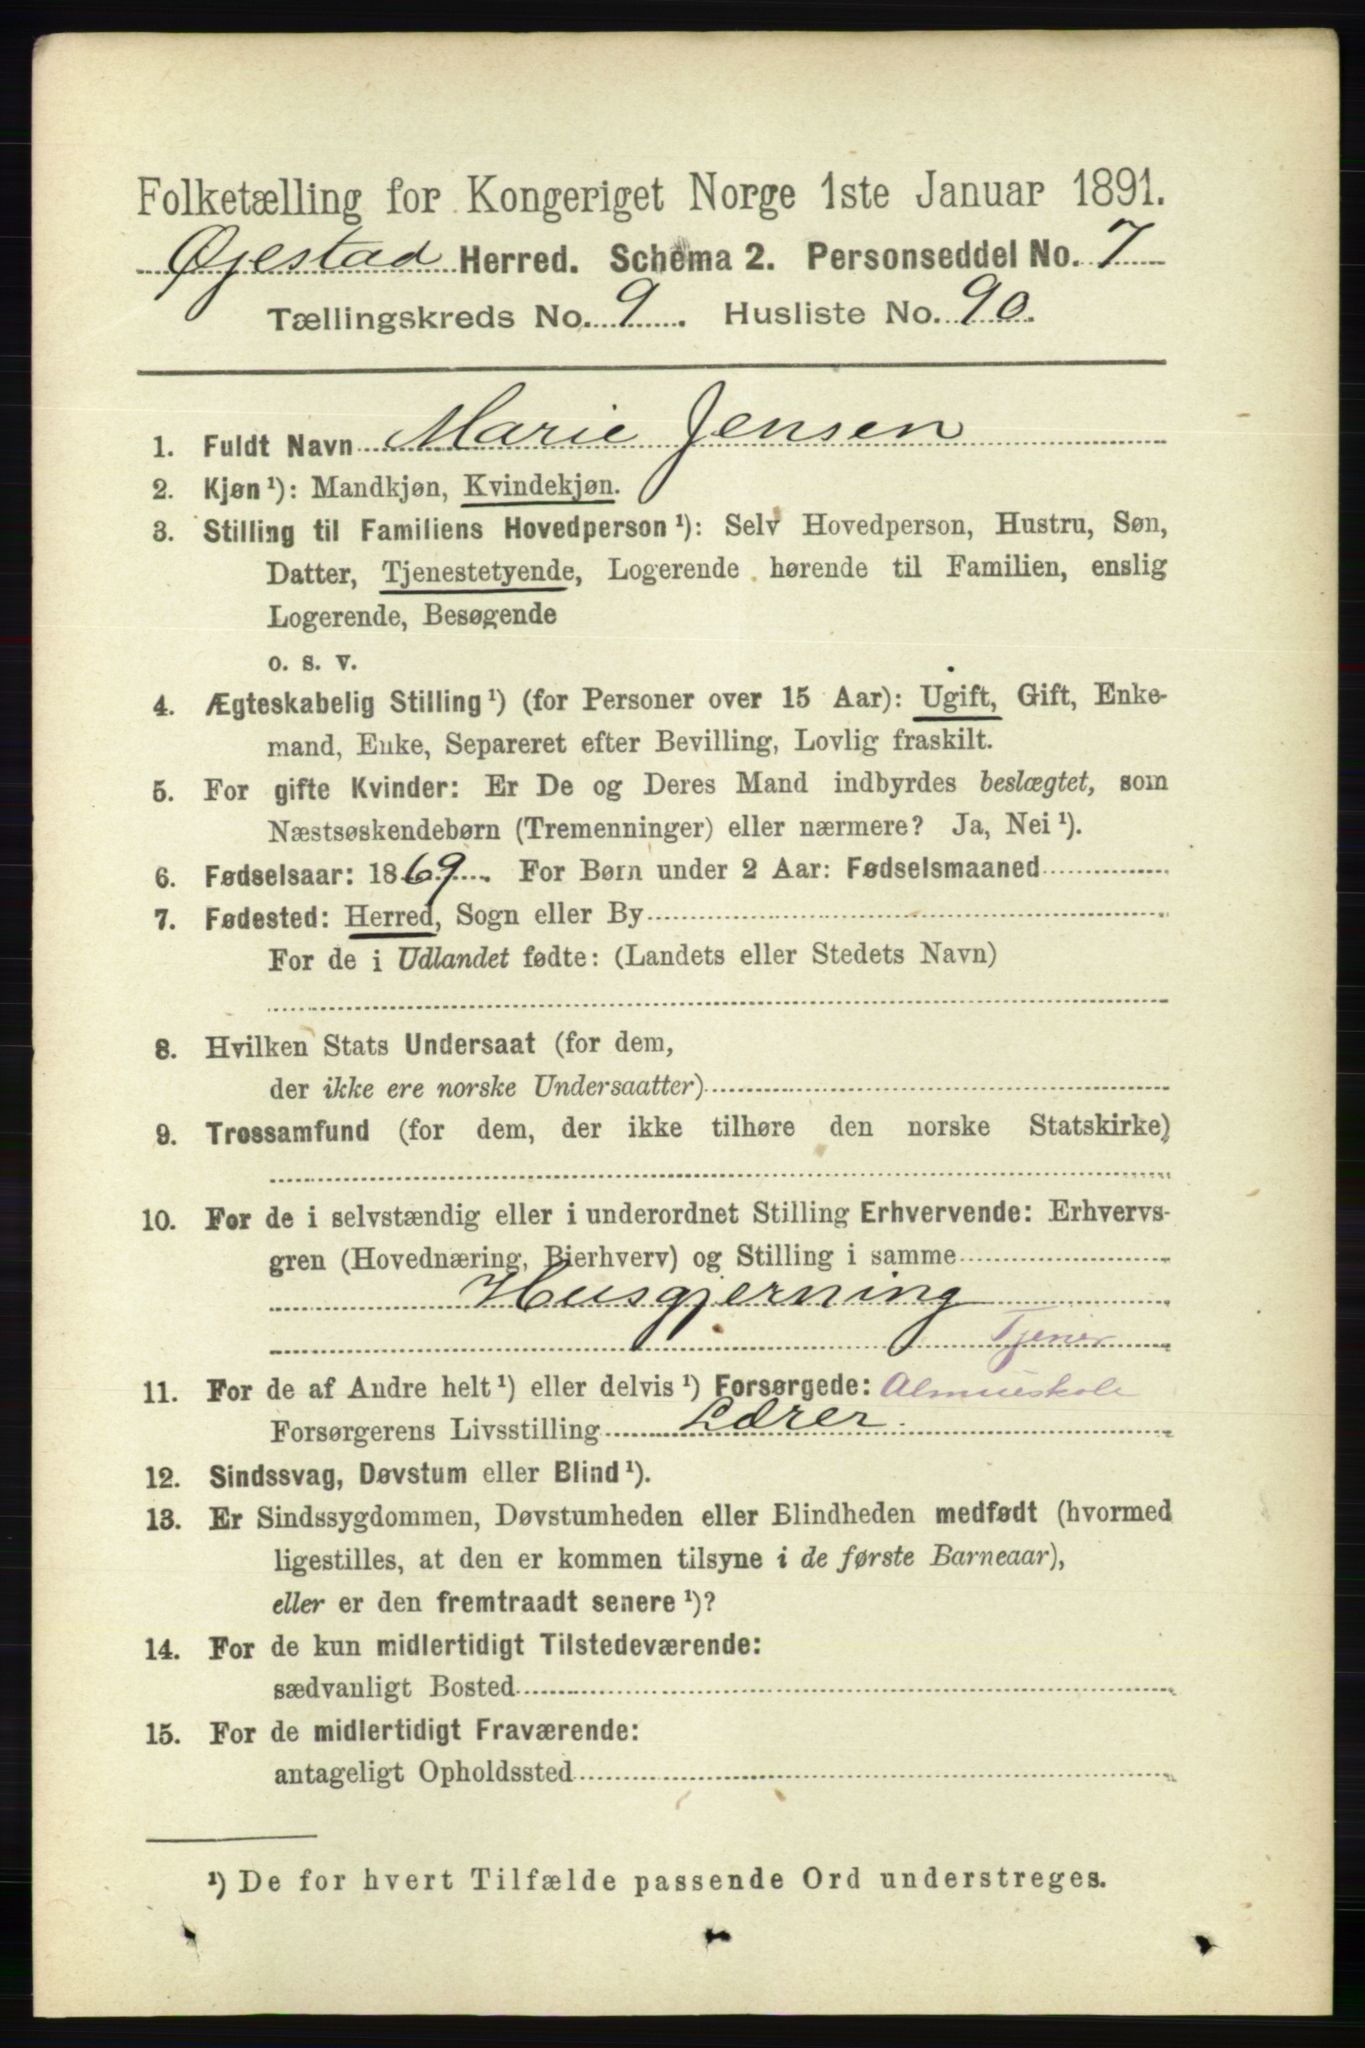 Folketælling for Kongeriget Norge 1ste Januar 1891.
Øjestad Herred. Schema 2. Personseddel No. 7
Tællingskreds No. 9. Husliste No. 90.
1. Fuldt Navn Marie Jensen
2. Kjøn¹): Mandkjøn, Kvindekjøn.
3. Stilling til Familiens Hovedperson¹): Selv Hovedperson, Hustru, Søn,
Datter, Tjenestetyende, Logerende hørende til Familien, enslig
Logerende, Besøgende
o. s. v.
4. Ægteskabelig Stilling¹) (for Personer over 15 Aar): Ugift, Gift, Enke-
mand, Enke, Separeret efter Bevilling, Lovlig fraskilt.
5. For gifte Kvinder: Er De og Deres Mand indbyrdes beslægtet, som
Næstsøskendebørn (Tremenninger) eller nærmere? Ja, Nei¹).
6. Fødselsaar: 1869. For Børn under 2 Aar: Fødselsmaaned
7. Fødested: Herred, Sogn eller By
For de i Udlandet fødte: (Landets eller Stedets Navn)
8. Hvilken Stats Undersaat (for dem,
der ikke ere norske Undersaatter)
9. Trossamfund (for dem, der ikke tilhøre den norske Statskirke)
10. For de i selvstændig eller i underordnet Stilling Erhvervende: Erhvervs-
gren (Hovednæring, Bierhverv) og Stilling i samme
Husgjerning
Tjener
11. For de af Andre helt¹) eller delvis¹) Forsørgede: Almueskole
Forsørgerens Livsstilling Lærer.
12. Sindssvag, Døvstum eller Blind¹).
13. Er Sindssygdommen, Døvstumheden eller Blindheden medfødt (hvormed
ligestilles, at den er kommen tilsyne i de første Barneaar),
eller er den fremtraadt senere¹)?
14. For de kun midlertidigt Tilstedeværende:
sædvanligt Bosted
15. For de midlertidigt Fraværende:
antageligt Opholdssted
¹) De for hvert Tilfælde passende Ord understreges.